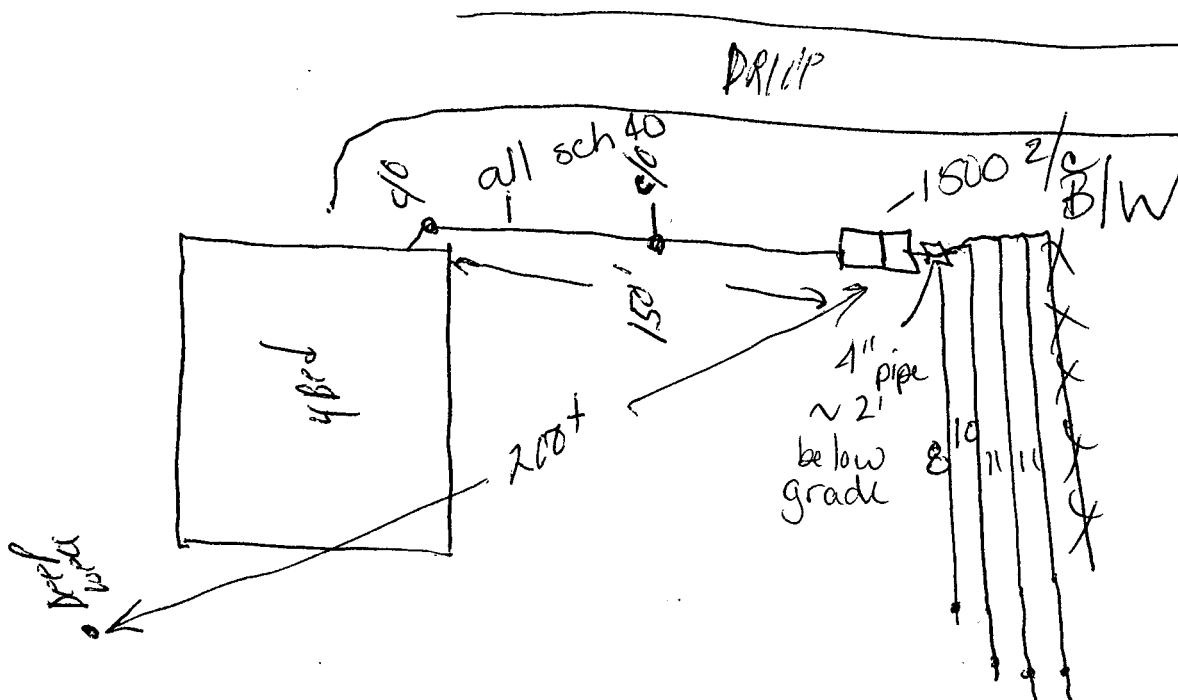 DRIVE
c/o
all sch 40
c/o
1500 2/c
B/W
150'
4 BR
200+
4" pipe
~ 2'
below
grade
8
10
11
11
Deep
well